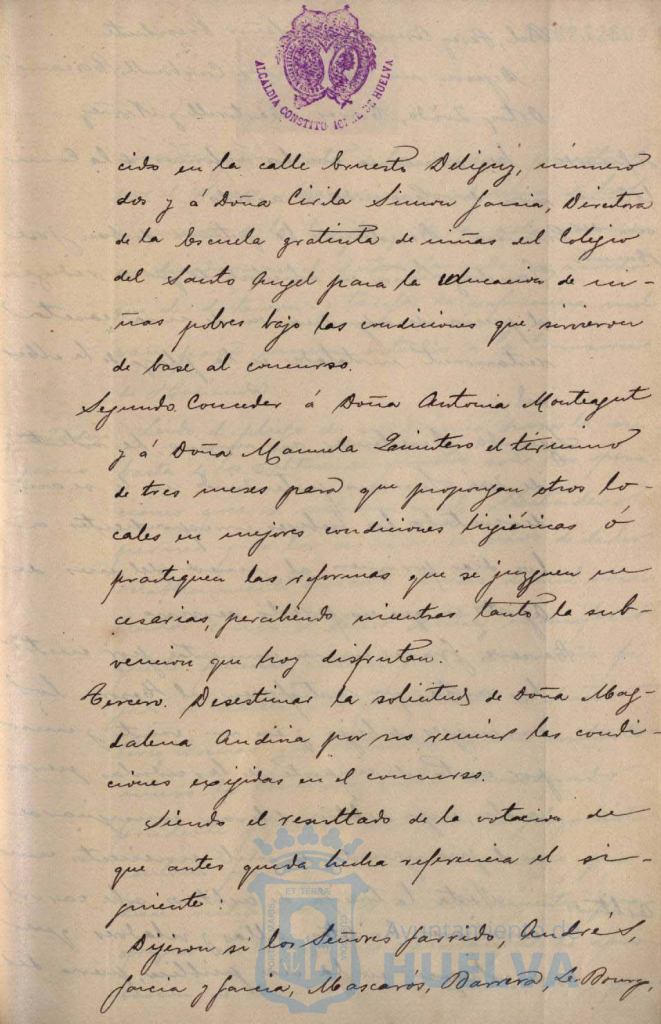 ALCALDIA CONSTITUCIONAL DE HUELVA
cido en la calle Ernesto Deligny, número
dos y á Doña Cirila Simon Garcia, Directora
de la Escuela gratuita de niñas del Colegio
del Santo Angel para la educacion de ni-
ñas pobres bajo las condiciones que sirvieron
de base al concurso.
Segundo. Conceder á Doña Antonia Monteagut
y á Doña Manuela Quintero el término
de tres meses para que propongan otros lo-
cales en mejores condiciones higiénicas ó
practiquen las reformas que se juzguen ne
cesarias, percibiendo mientras tanto la sub-
vencion que hoy disfrutan.
Tercero. Desestimar la solicitud de Doña Mag-
dalena Andina por no reunir las condi-
ciones exijidas en el concurso.
Siendo el resultado de la votacion de
que antes queda hecha referencia el si-
guiente:
Dijeron si los Señores Garrido, Andrés,
Garcia y Garcia, Mascarós, Barrera, Le Bourg,
Ayuntamiento de
HUELVA